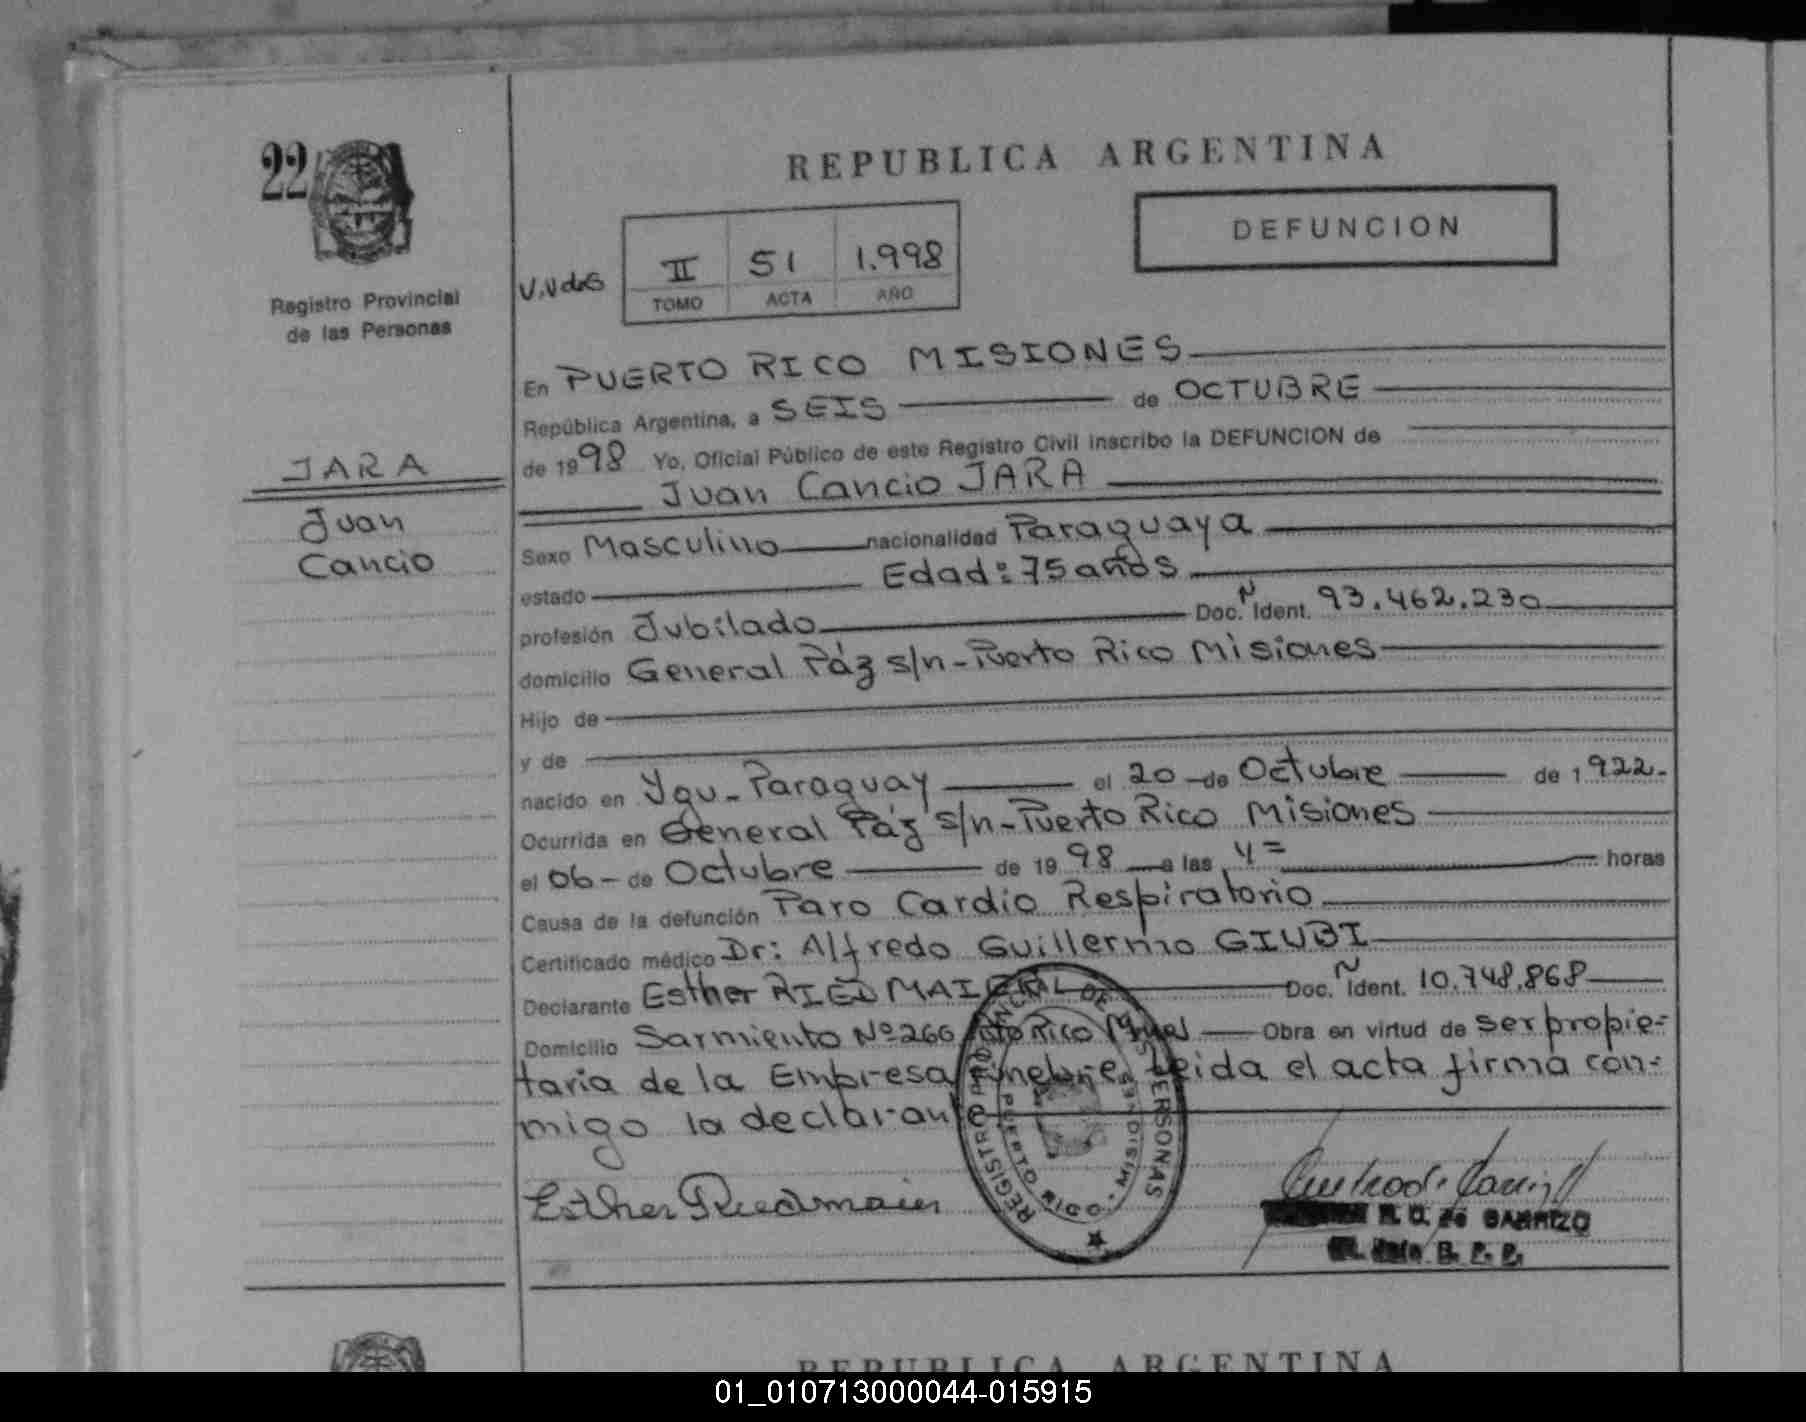 22
Registro Provincial
de las Personas
JARA
Juan
Cancio
REPUBLICA ARGENTINA
DEFUNCION
II 51 1.998
TOMO ACTA AÑO
En PUERTO RICO MISIONES
República Argentina, a SEIS de OCTUBRE
de 1998 Yo, Oficial Público de este Registro Civil inscribo la DEFUNCION de
Juan Cancio JARA
Sexo Masculino nacionalidad Paraguaya
estado Edad: 75 años
profesión Jubilado Doc. Ñ Ident. 93.462.230
domicilio General Páz s/n - Puerto Rico Misiones
Hijo de
y de
nacido en Ygu - Paraguay el 20 - de Octubre de 1922.
Ocurrida en General Páz s/n - Puerto Rico Misiones
el 06 - de Octubre de 1998 a las 4= horas
Causa de la defunción Paro Cardio Respiratorio
Certificado médico Dr: Alfredo Guillermo GIUBI
Declarante Esther RIEDMAIER Doc. Ñ Ident. 10.748.868
Domicilio Sarmiento Nº 266 Pto Rico Mnes Obra en virtud de ser propie=
taria de la Empresa Funebre. Leida el acta firma con=
migo la declarante
Esther Riedmaier
REGISTRO PROVINCIAL DE LAS PERSONAS
PUERTO RICO MISIONES
R. O. de CARRIZO
R. P. P.
REPUBLICA ARGENTINA
01_010713000044-015915